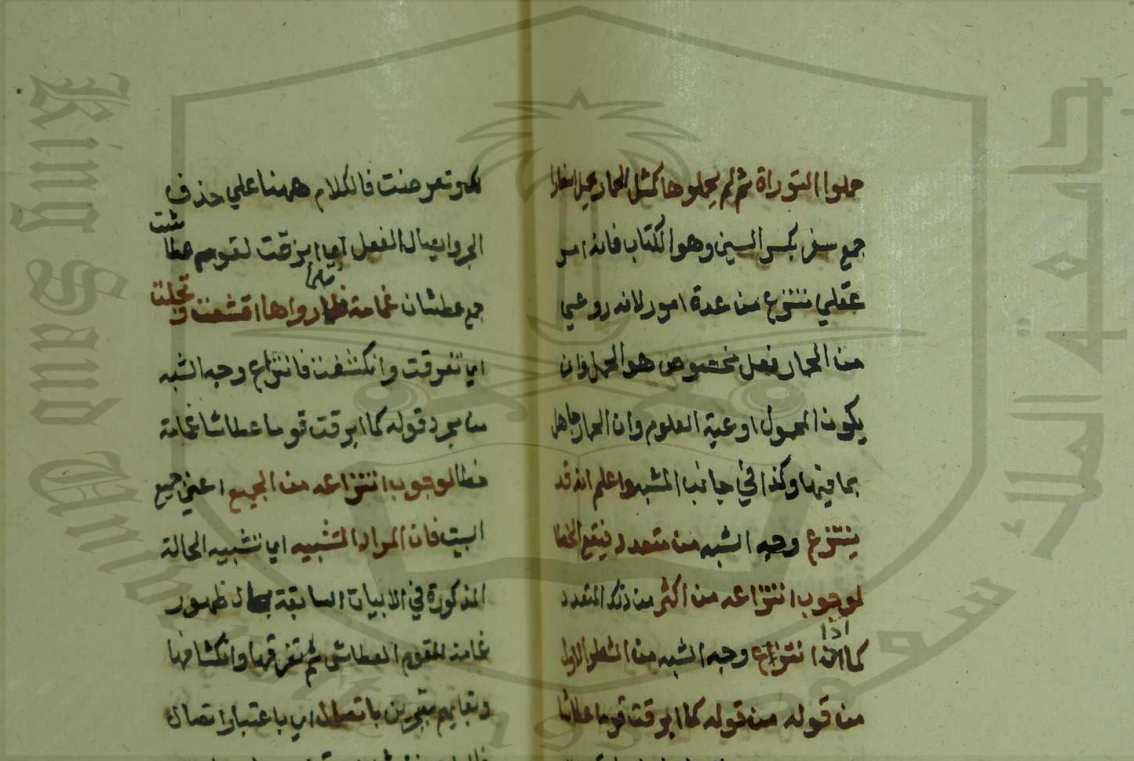 حملوا التوراة ثم لم يحملوها كمثل الحمار يحمل اسفارا
جمع سفر بكسر السين وهو الكتاب فانه امر
عقلي منتزع من عدة امور لانه روعي
من الحمار فعل مخصوص هو الحمل وان
يكون المحمول اوعية العلوم وان الحمار جاهل
بما فيها وكذا في جانب المشبه واعلم انه قد
ينتزع وجه الشبه من متعدد فيقع الخطا
لوجوب انتزاعه من اكثر من ذلك المتعدد
كما اذا انتزع وجه الشبه من الشطر الاول
من قوله من قوله كما ابرقت قوما عطاشا
وتعرضت فالكلام ههنا علي حذف
الجر وايصال الفعل اي ابرقت لقوم عطاش
جمع عطشان غمامة فلما راوها اقشعت وتجلت
اي تفرقت وانكشفت فانتزاع وجه الشبه
من مجرد قوله كما ابرقت قوما عطاشا غمامة
خطا لوجوب انتزاعه من الجميع اعني جميع
البيت فان المراد التشبيه اي تشبيه الحالة
المذكورة في الابيات السابقة بحال ظهور
غمامة لقوم العطاش ثم تفرقها وانكشافها
وبقايهم متحيرين باتصال اي باعتبار اتصال
King Saud University
جامعة الملك سعود
1957